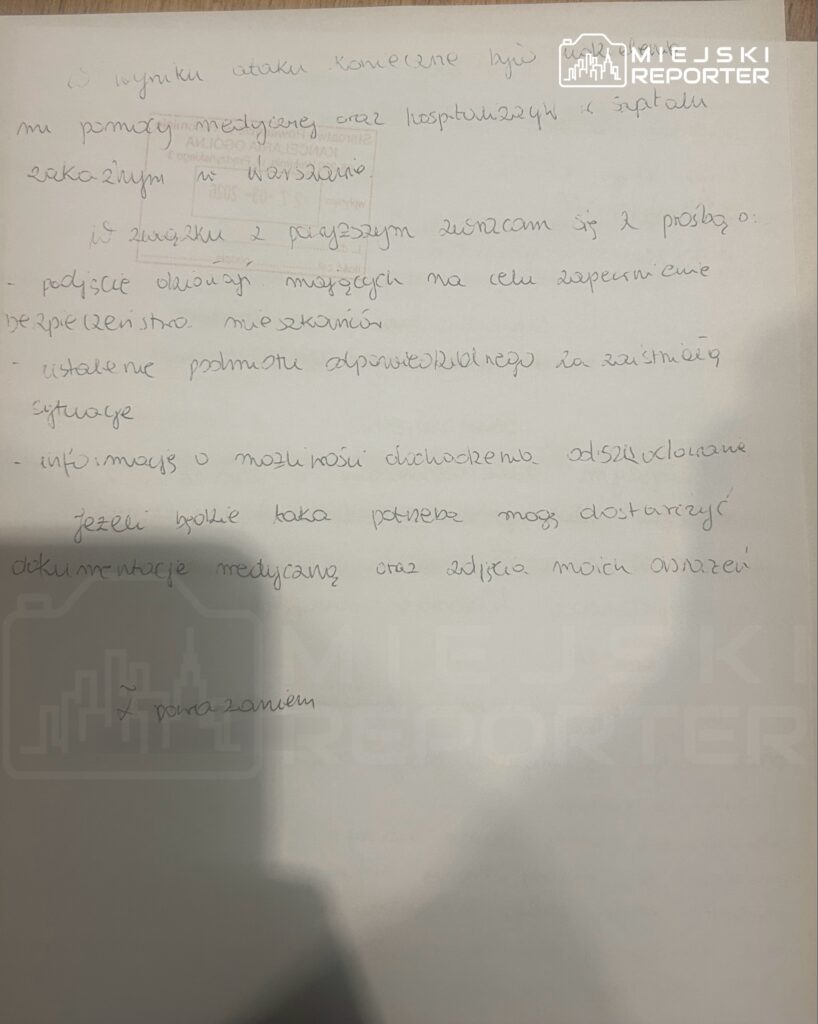 MIEJSKI
REPORTER
W wyniku ataku konieczne było
mi pomocy medycznej oraz hospitalizacja w szpitalu
zakaźnym w Warszawie.
W związku z powyższym zwracam się z prośbą o:
- podjęcie działań mających na celu zapewnienie
bezpieczeństwa mieszkańców
- ustalenie podmiotu odpowiedzialnego za zaistniałą
sytuację
- informację o możliwości dochodzenia odszkodowania
Jeżeli będzie taka potrzeba mogę dostarczyć
dokumentację medyczną oraz zdjęcia moich obrażeń
Z poważaniem
MIEJSKI
REPORTER